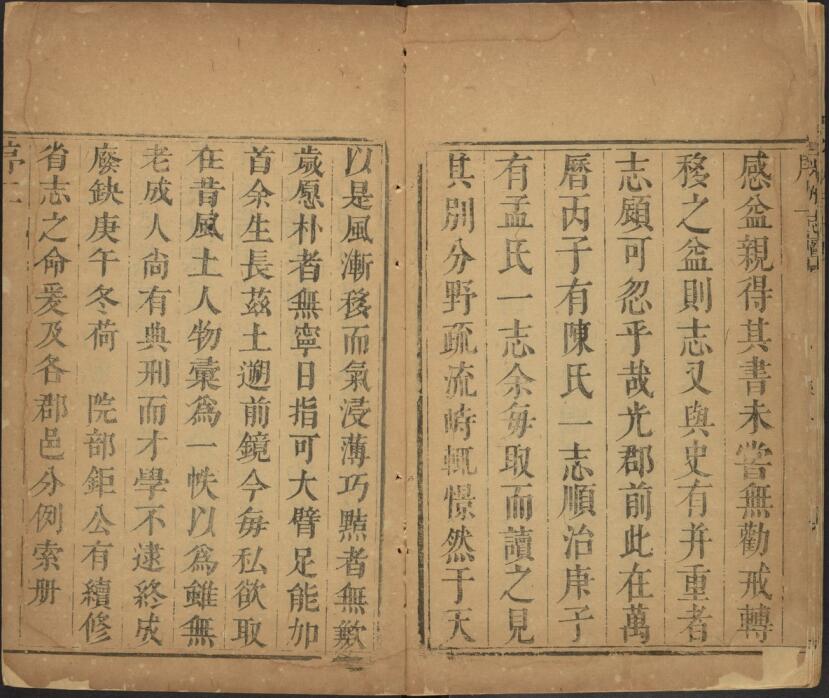 感益親得其書未嘗無勸戒轉
移之益則志又與史有并重者
志顧可忽乎哉光郡前此在萬
曆丙子有陳氏一志順治庚子
有孟氏一志余每取而讀之見
其別分野疏流峙輒憬然于天
以是風漸移而氣浸薄巧黠者無歉
歲愿朴者無寧日指可大臂足能加
首余生長茲土遡前鏡今每私欲取
在昔風土人物彙為一帙以為雖無
老成人尚有典刑而才學不逮終成
廢鈌庚午冬荷　院部鉅公有續修
省志之命爰及各郡邑分例索册